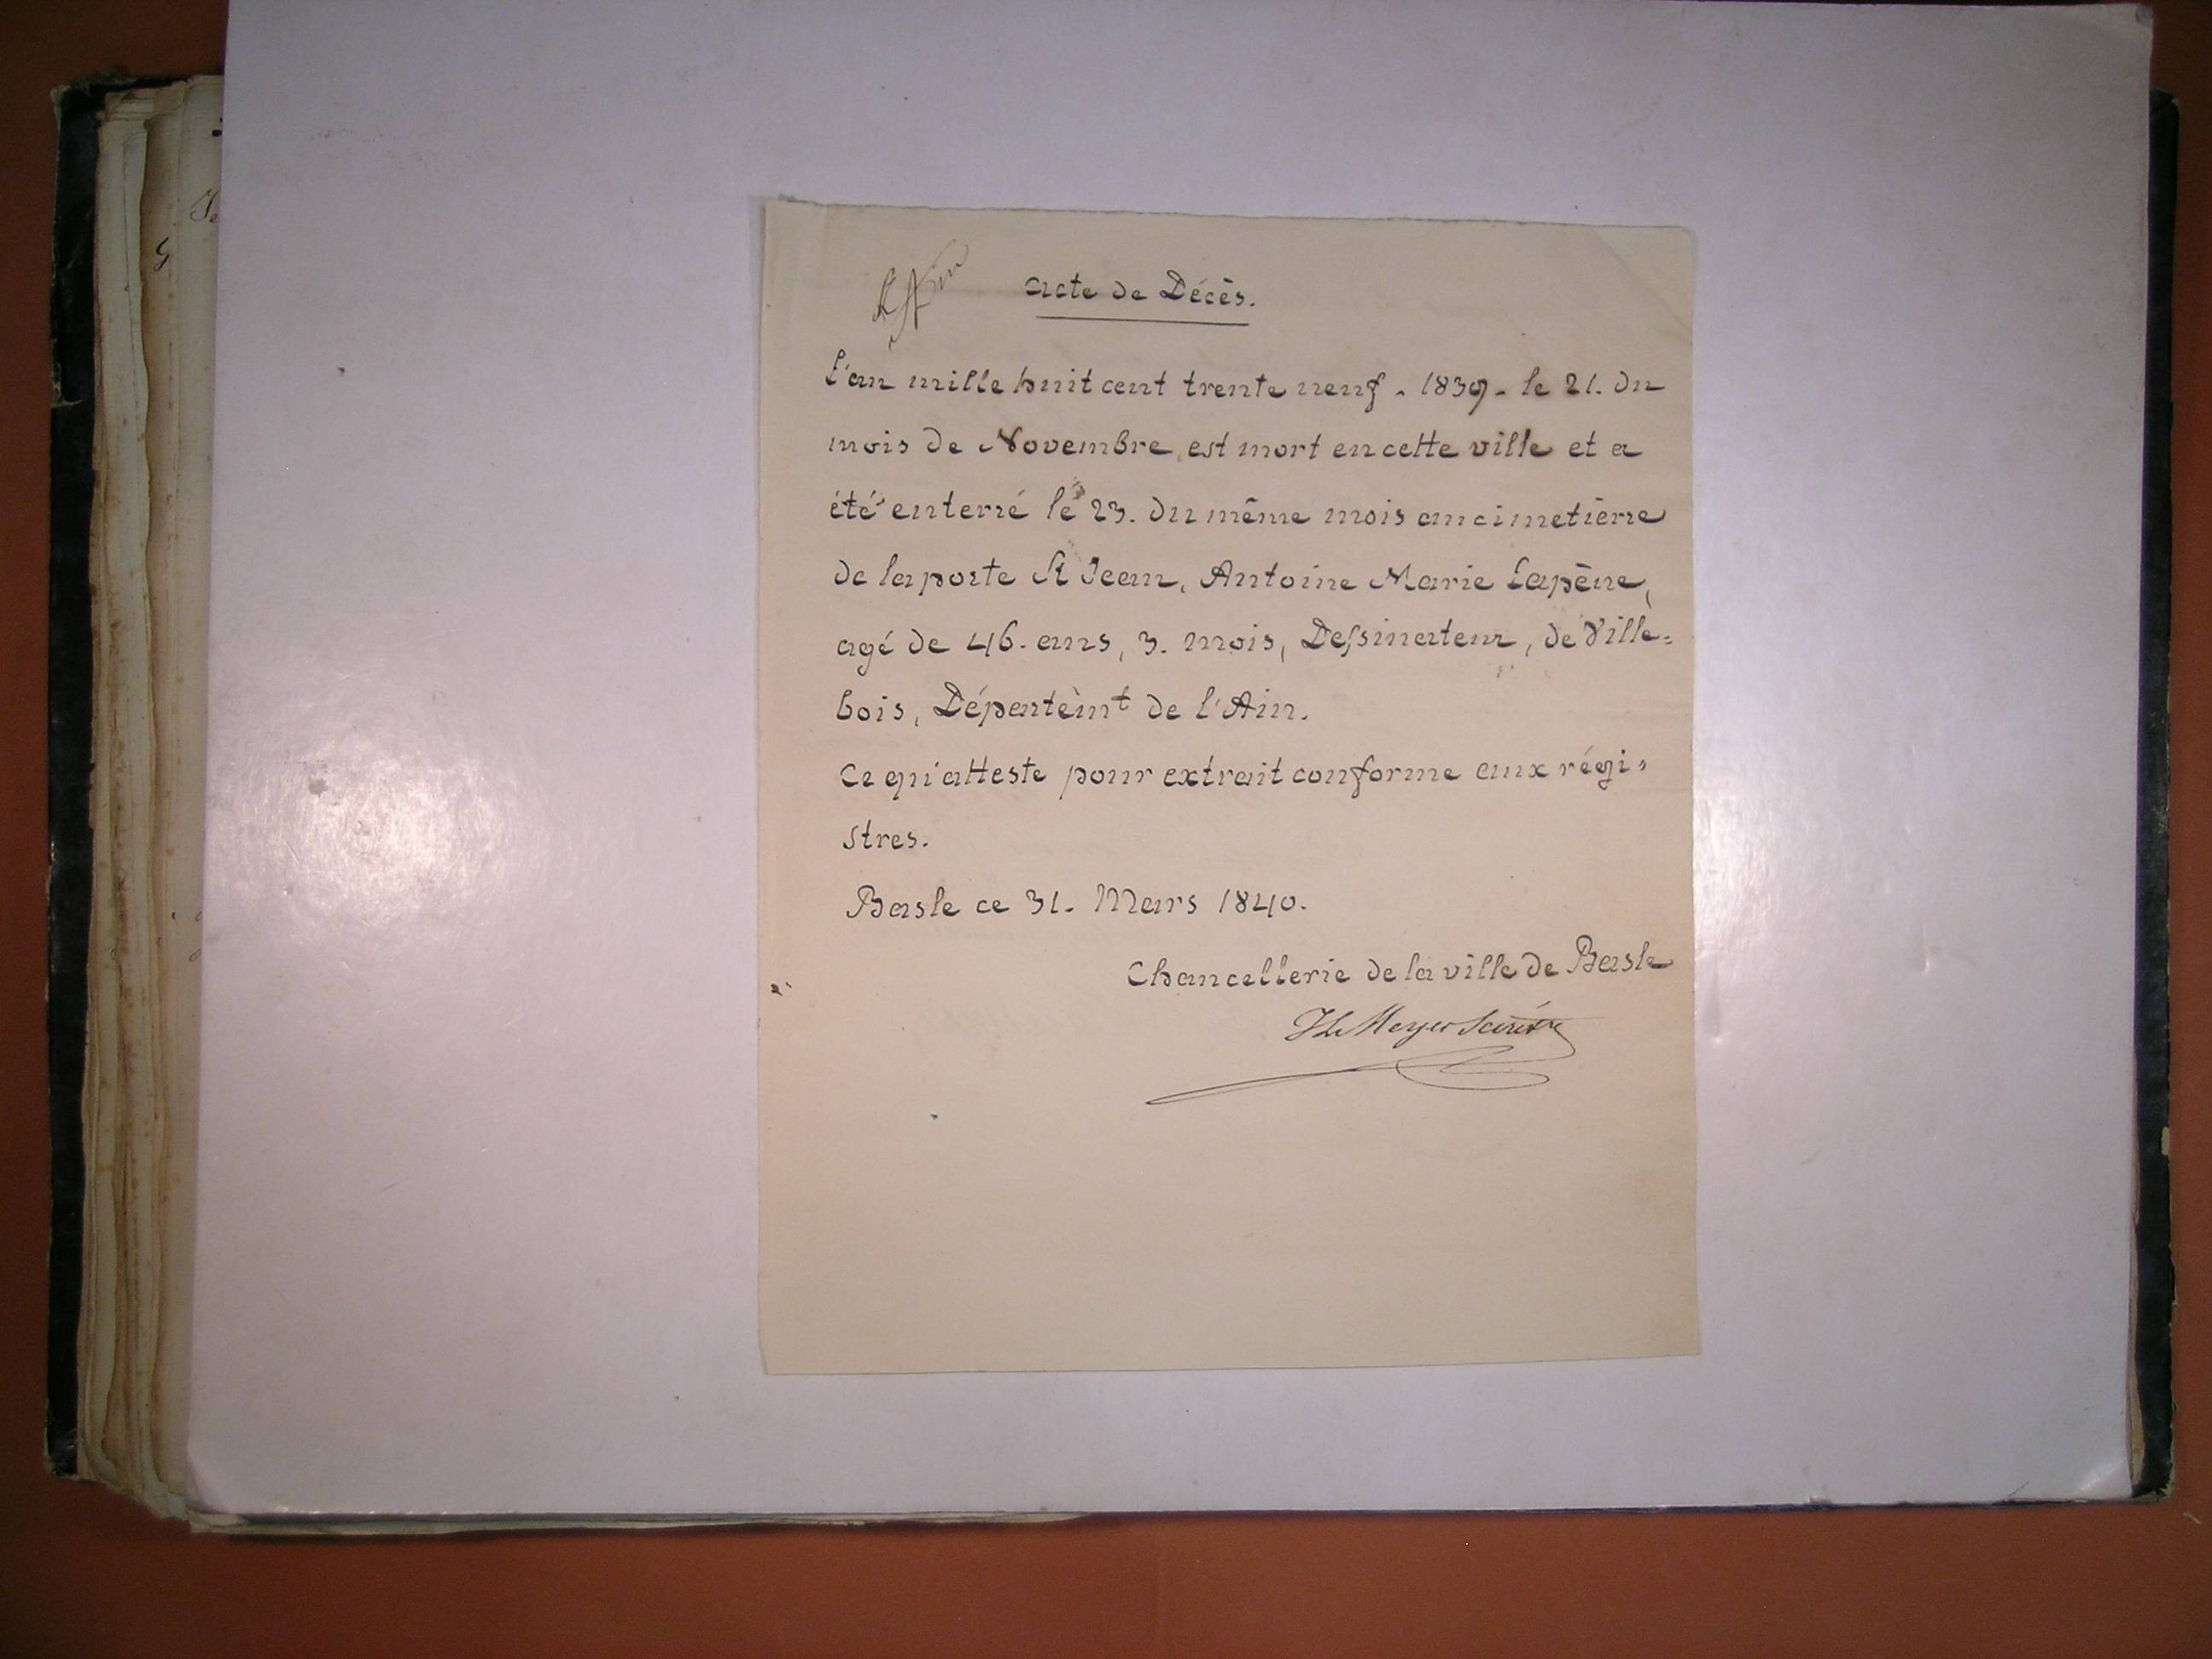 Acte de Décès.
L'an mille huit cent trente neuf - 1839 - le 21. du
mois de Novembre, est mort en cette ville et a
été enterré le 23. du même mois au cimetière
de la porte St Jean, Antoine Marie Lapène,
agé de 46. ans, 3. mois, Dessinateur, de Ville-
bois, Départemt de l'Ain.
Ce qu'atteste pour extrait conforme aux régi-
stres.
Basle ce 31. Mars 1840.
Chancellerie de la ville de Basle
Meyer Secrétre